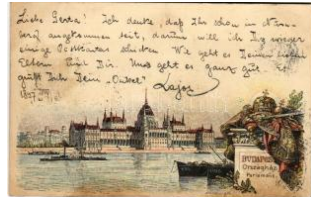 Liebe Gerda! Ich denke, daß Ihr schon in
angekommen seit, darum will ich Dir wieder
einige schicken. Wie geht es Deinen lieben
Eltern und Dir. Uns geht es ganz gut. Es
grüßt Dich Dein "Onkel"
Lajos
1897
BUDAPEST
Országház
Parlament